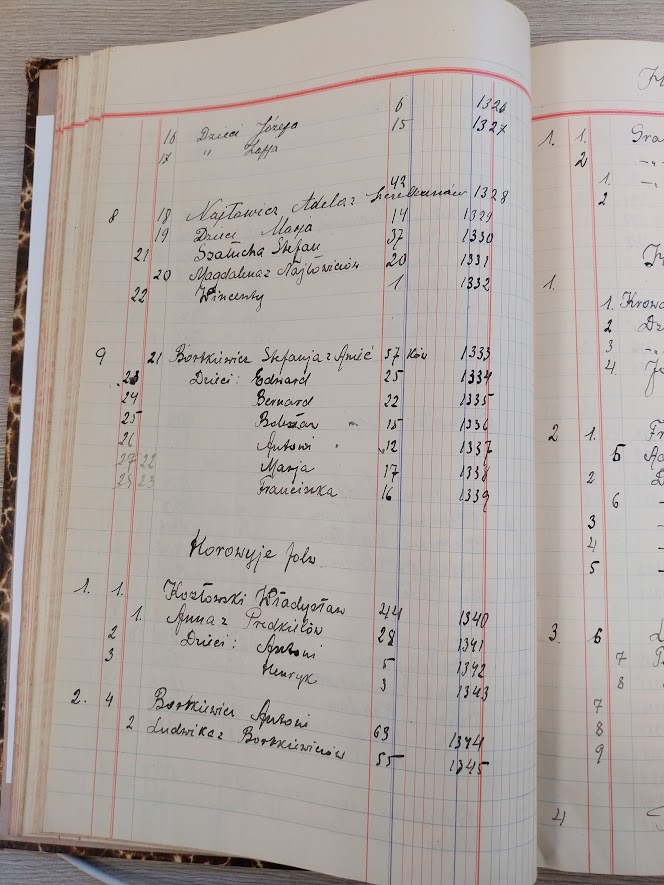 6 1326
16 Dzieci Józefa 15 1327
17 " Zofja
42
8 18 Najtowicz Adela z 1328
19 Dzieci Marja 14 1329
21 Szałucha Stefan 37 1330
20 Magdalena z Najtowiczów 20 1331
22 Wincenty 1 1332
9 21 Bortkiewicz Stefanja z 57 1333
23 Dzieci: Edward 25 1334
24 Bernard 22 1335
25 " 15 1336
26 Antoni 12 1337
27 22 Marja 17 1338
28 23 Franciszka 16 1339
Horowyje folw.
1. 1. Kozłowski Władysław 44 1340
1. Anna z 28 1341
2 Dzieci: Antoni 5 1342
3 Henryk 3 1343
2. 4 Bortkiewicz Antoni 63 1344
2 Ludwika z Bortkiewiczów 55 1345
1. 1.
2
1.
2
1.
1.
2
3
4
2 1.
5
2
6
3
4
5
3. 6
7
8
7
8
9
4